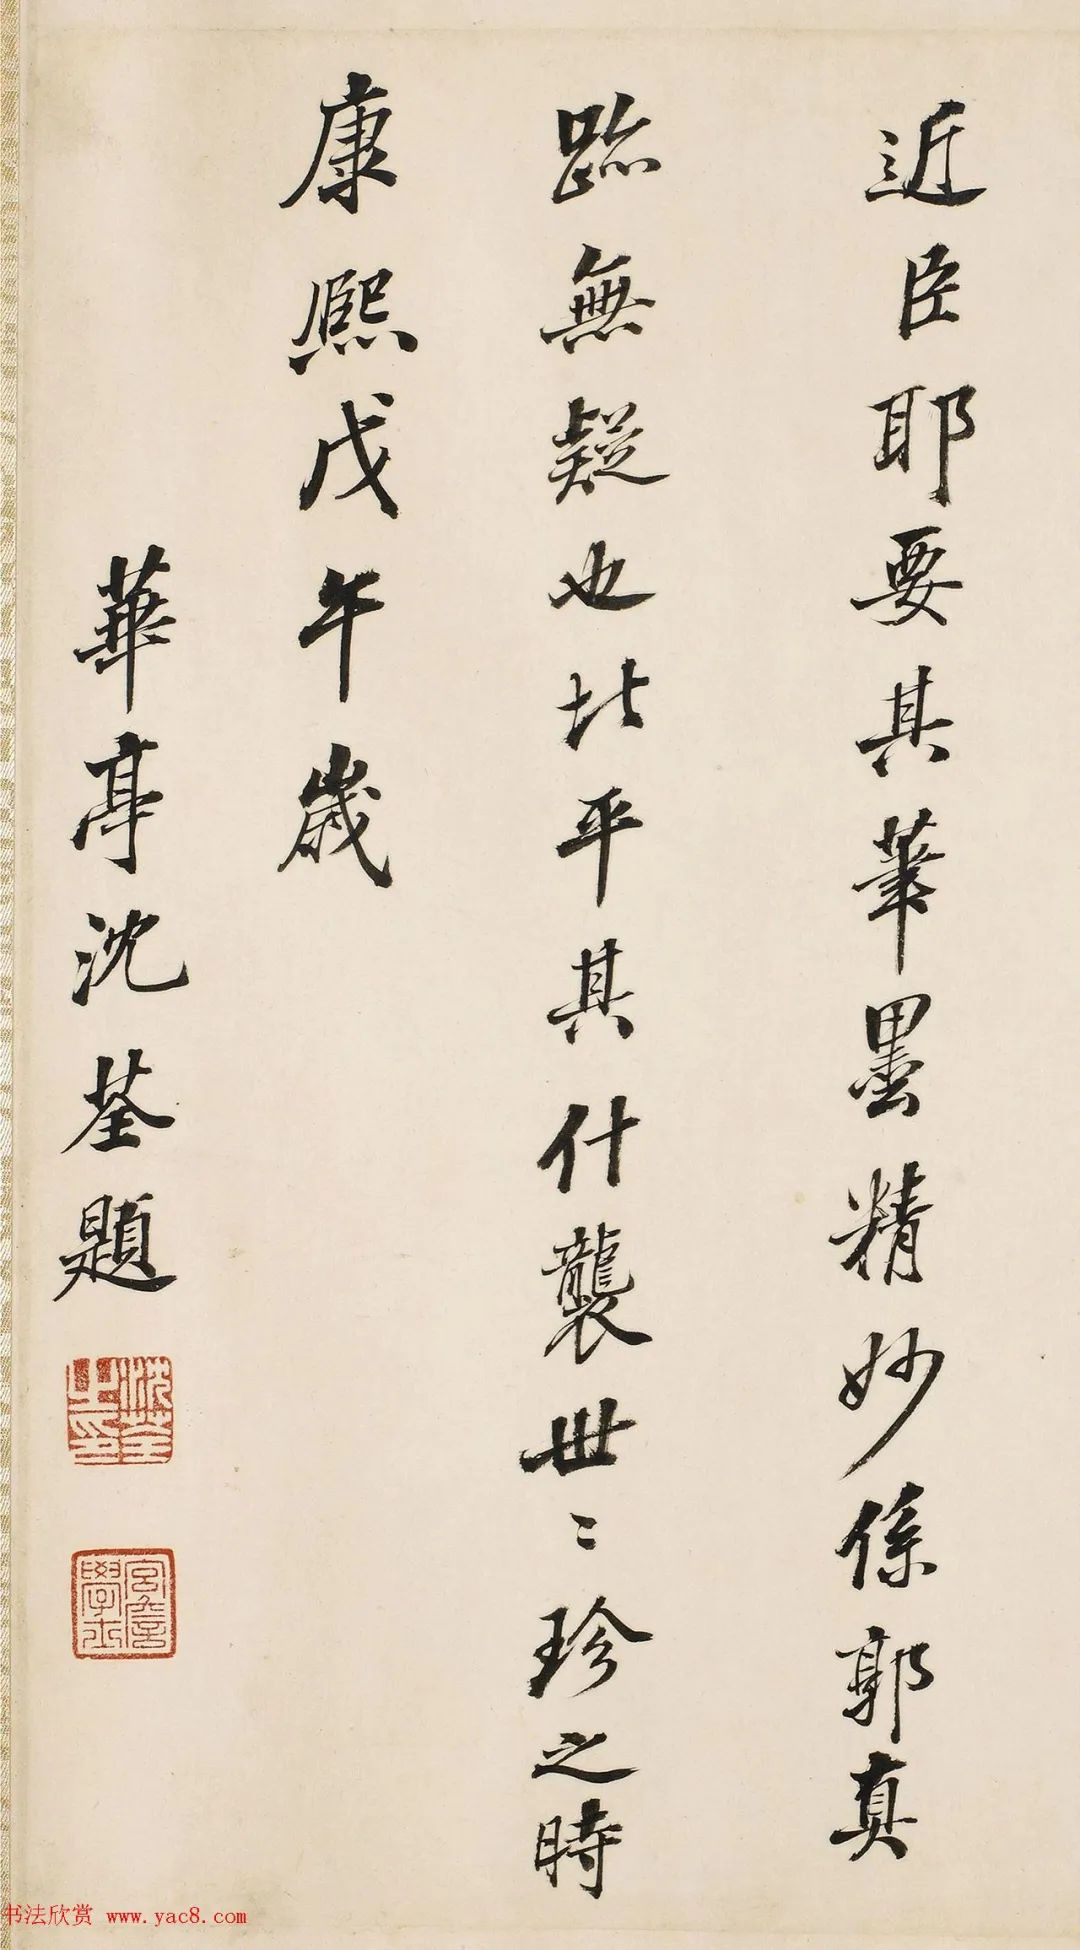 近臣耶要其筆墨精妙係郭真
跡無疑也北平其什襲世〻珍之時
康熙戊午歲
華亭沈荃題
沈荃之印
宮詹學士
书法欣赏 www.yac8.com